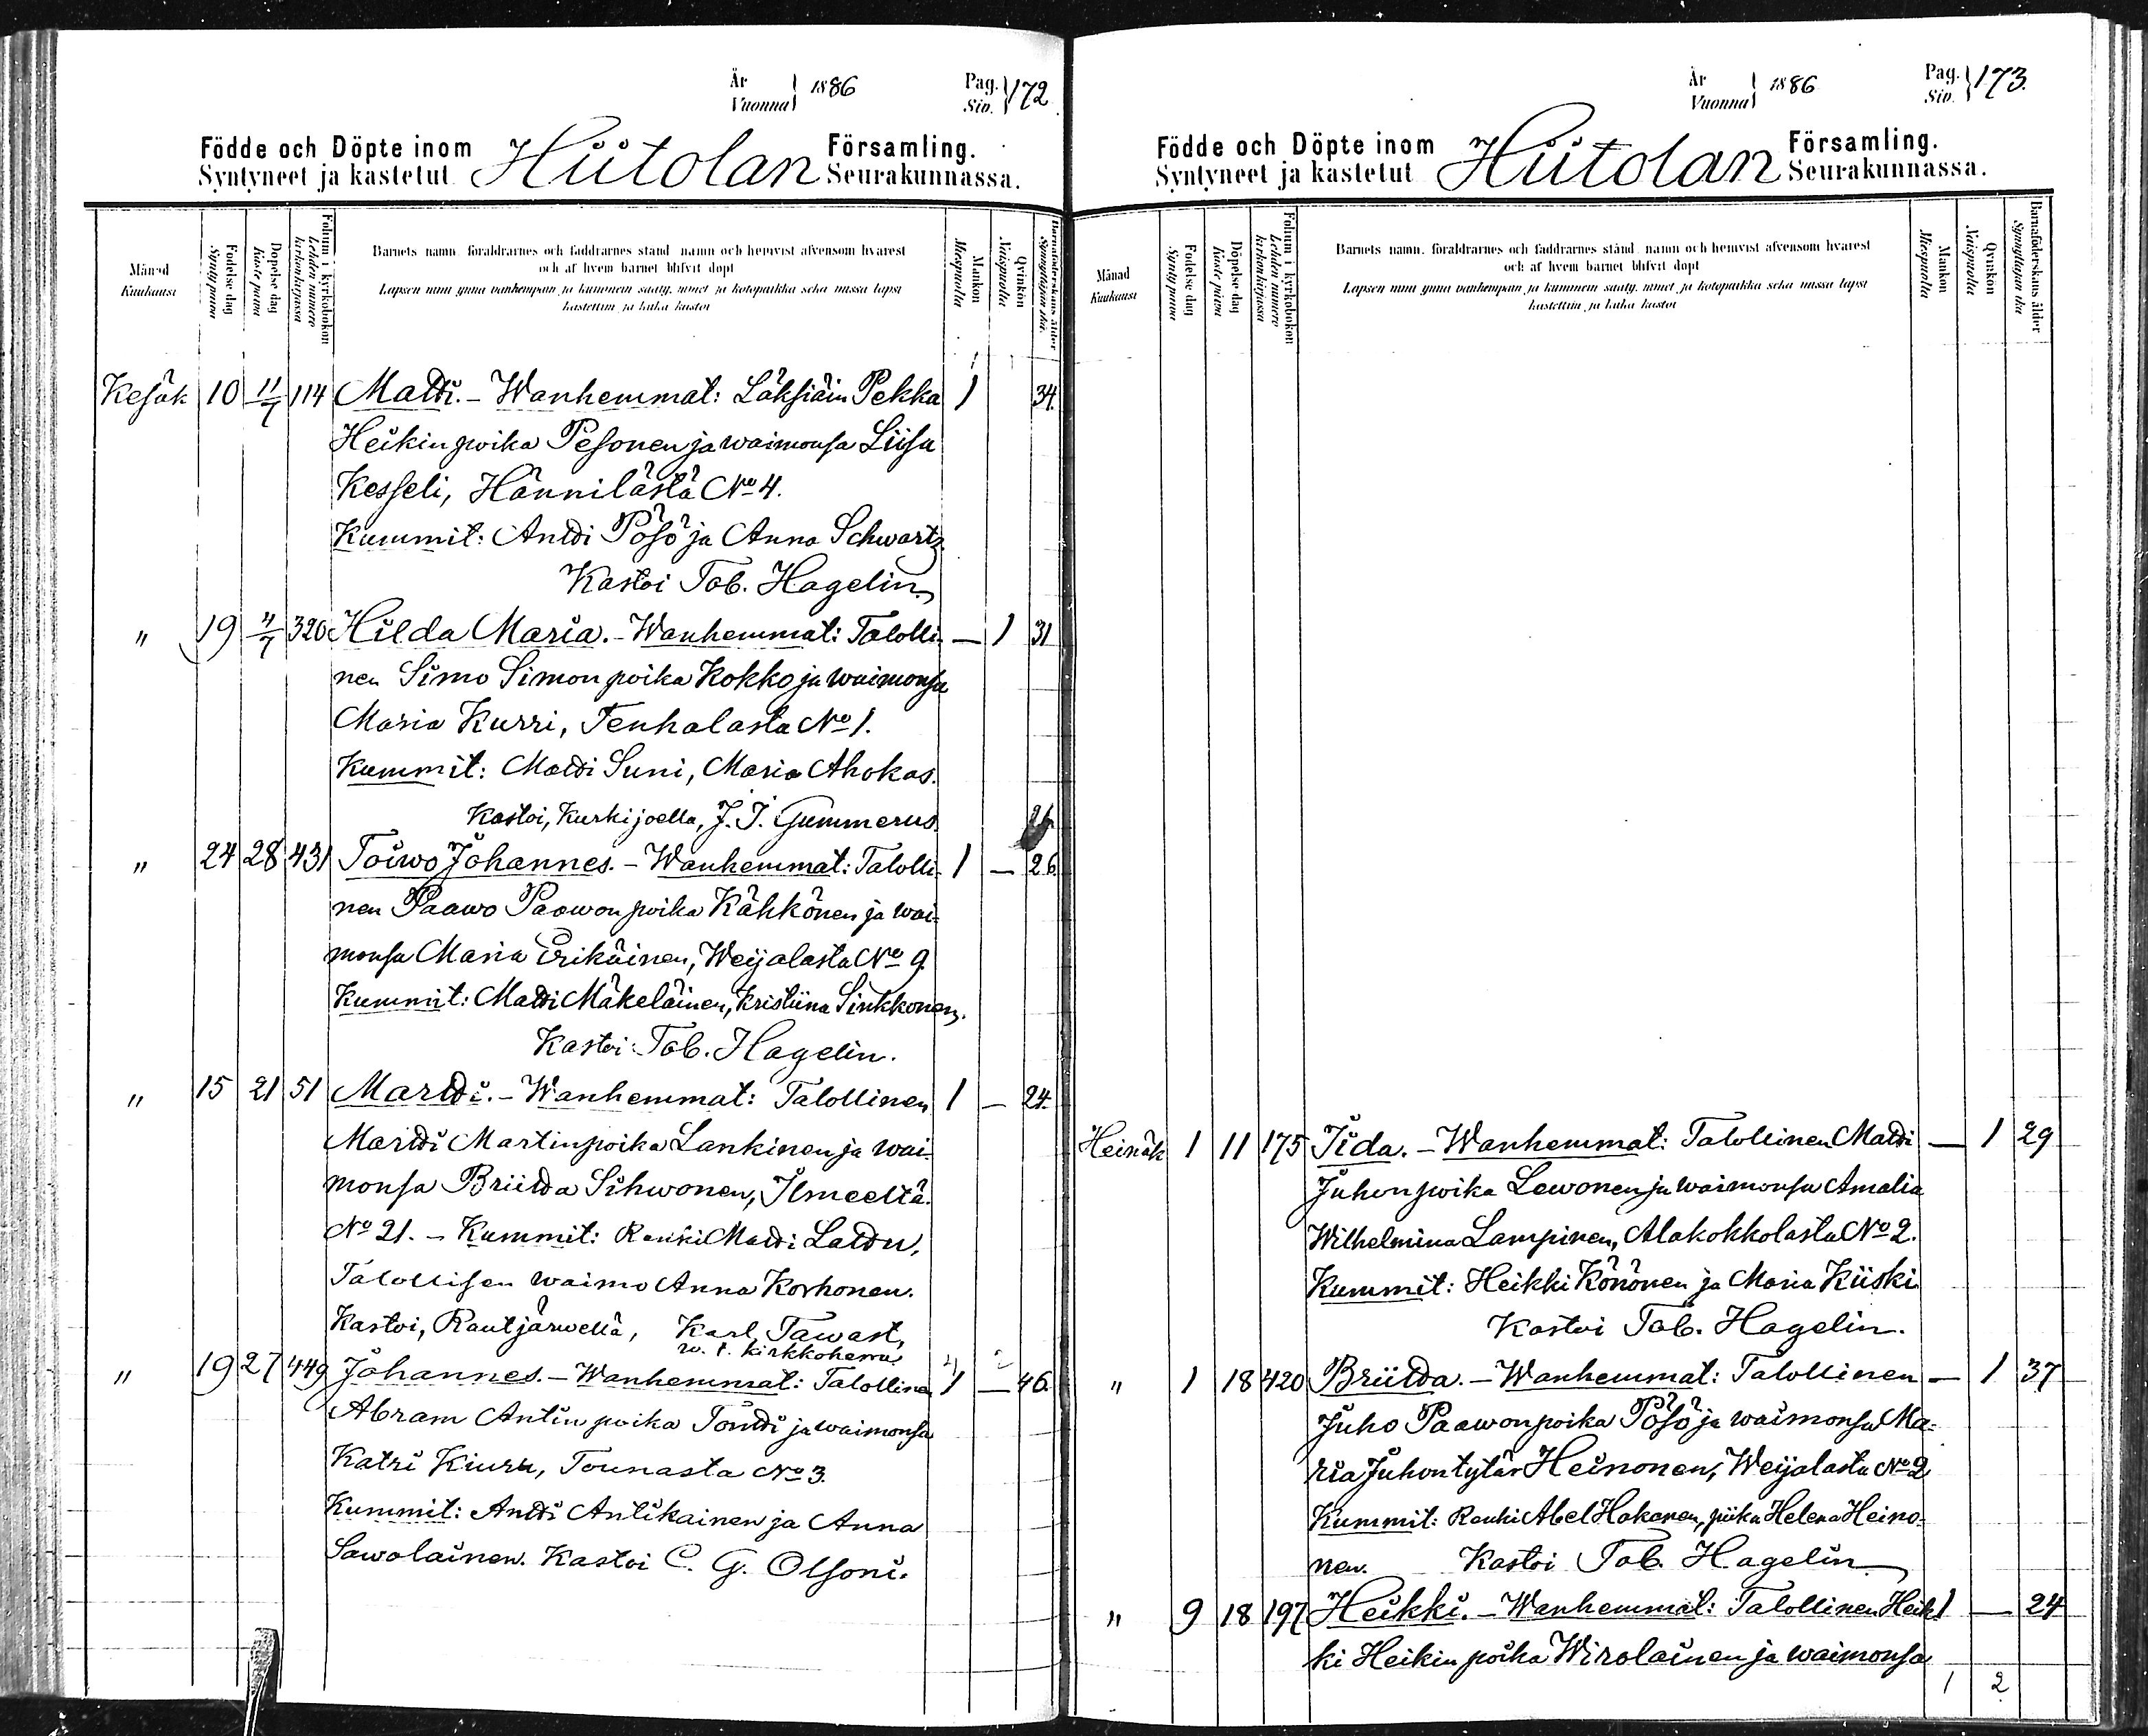 År
Vuonna } 1886
Pag.
Siv. } 172
Födde och Döpte inom Hiitolan Församling.
Syntyneet ja kastetut Seurakunnassa.
Månad
Kuukausi
Födelse dag
Synty päivä
Döpelse dag
Kaste päivä
Folium i kyrkoboken
Lehden numero
kirkonkirjassa
Barnets namn, föräldrarnes och faddrarnes stånd namn och hemvist äfvensom hvarest
och af hvem barnet blifvit döpt
Lapsen nimi ynnä vanhempain ja kummein sääty, nimet ja kotopaikka sekä missä lapsi
kastettiin ja kuka kastoi
Mankön
Miespuolta
Qvinkön
Naispuolta
Barnaföderskans ålder
Synnyttäjän ikä
Kesäk 10 11/7 114 Matti. – Wanhemmat: Läksiäin Pekka 1 34.
Heikinpoika Pesonen ja waimonsa Liisa
Kesseli, Hännilästä No 4.
Kummit: Antti Pösö ja Anna Schwartz.
Kastoi Tob. Hagelin.
" 19 4/7 320 Hilda Maria. – Wanhemmat: Talolli- — 1 31
nen Simo Simonpoika Kokko ja waimonsa
Maria Kurri, Tenhalasta No 1.
Kummit: Matti Suni, Maria Ahokas.
Kastoi, Kurkijoella, J. I. Gummerus.
" 24 28 431 Toiwo Johannes. – Wanhemmat: Talolli- 1 — 26.
nen Paawo Paawonpoika Kähkönen ja wai-
monsa Maria Erikäinen, Weijalasta No 9.
Kummit: Matti Mäkeläinen, Kristiina Sinkkonen.
Kastoi: Tob. Hagelin.
" 15 21 51 Martti. – Wanhemmat: Talollinen 1 — 24.
Martti Martinpoika Lankinen ja wai-
monsa Briitta Sihwonen, Ilmeeltä
No 21. – Kummit: Renki Matti Lattu,
Talollisen waimo Anna Korhonen.
Kastoi, Rautjärwellä, Karl Tawast,
w. t. kirkkoherra
" 19 27 449 Johannes. – Wanhemmat: Talollinen 1 — 46.
Abram Antinpoika Tontti ja waimonsa
Katri Kiuru, Tounasta No 3.
Kummit: Antti Antikainen ja Anna
Sawolainen. Kastoi C. G. Olsoni.
År
Vuonna } 1886
Pag.
Siv. } 173.
Födde och Döpte inom Hiitolan Församling.
Syntyneet ja kastetut Seurakunnassa.
Månad
Kuukausi
Födelse dag
Synty päivä
Döpelse dag
Kaste päivä
Folium i kyrkoboken
Lehden numero
kirkonkirjassa
Barnets namn, föräldrarnes och faddrarnes stånd namn och hemvist äfvensom hvarest
och af hvem barnet blifvit döpt
Lapsen nimi ynnä vanhempain ja kummein sääty, nimet ja kotopaikka sekä missä lapsi
kastettiin ja kuka kastoi
Mankön
Miespuolta
Qvinkön
Naispuolta
Barnaföderskans ålder
Synnyttäjän ikä
Heinäk 1 11 175 Iida. – Wanhemmat: Talollinen Matti — 1 29
Juhonpoika Lewonen ja waimonsa Amalia
Wilhelmina Lampinen, Alakokkolasta No 2.
Kummit: Heikki Könönen ja Maria Kiiski
Kastoi Tob. Hagelin.
" 1 18 420 Briitta. – Wanhemmat: Talollinen — 1 37
Juho Paawonpoika Pösö ja waimonsa Ma-
ria Juhontytär Heinonen, Weijalasta No 2
Kummit: Renki Abel Hakonen, piika Helena Heino-
nen. Kastoi Tob. Hagelin
" 9 18 197 Heikki. – Wanhemmat: Talollinen Heik- 1 — 24
ki Heikinpoika Wirolainen ja waimonsa
1 2